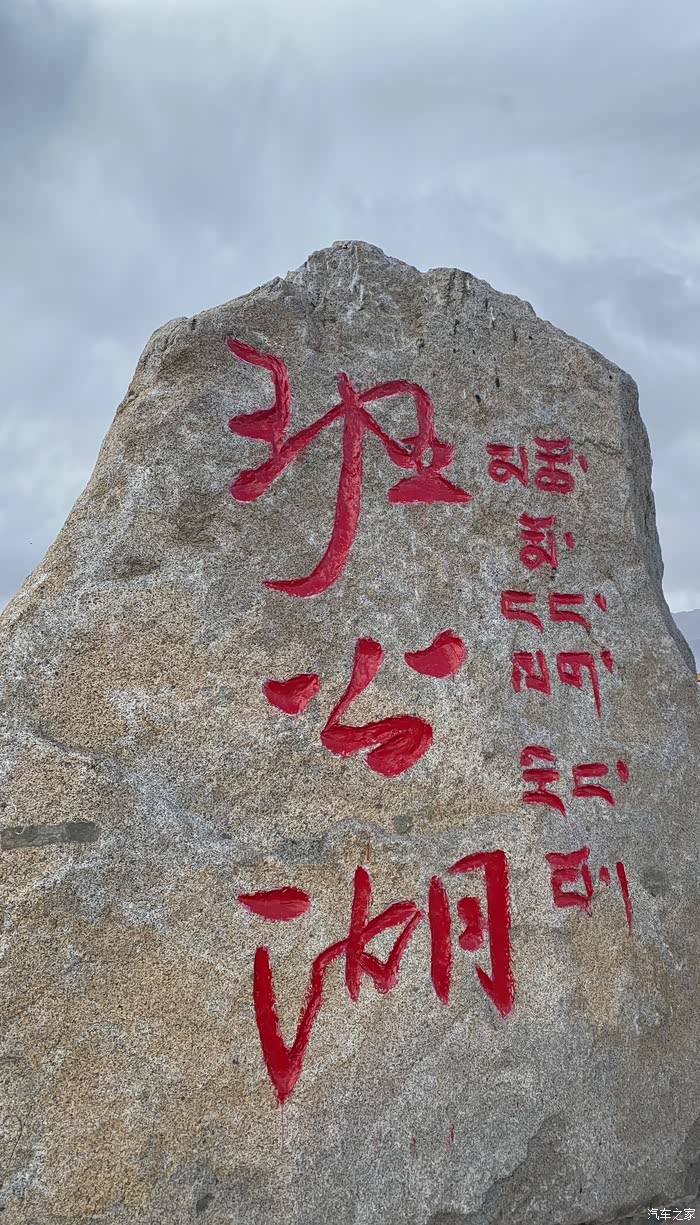 班公湖
མཚོ་
མོ་
ངང་
རིང་
པོ།
汽车之家